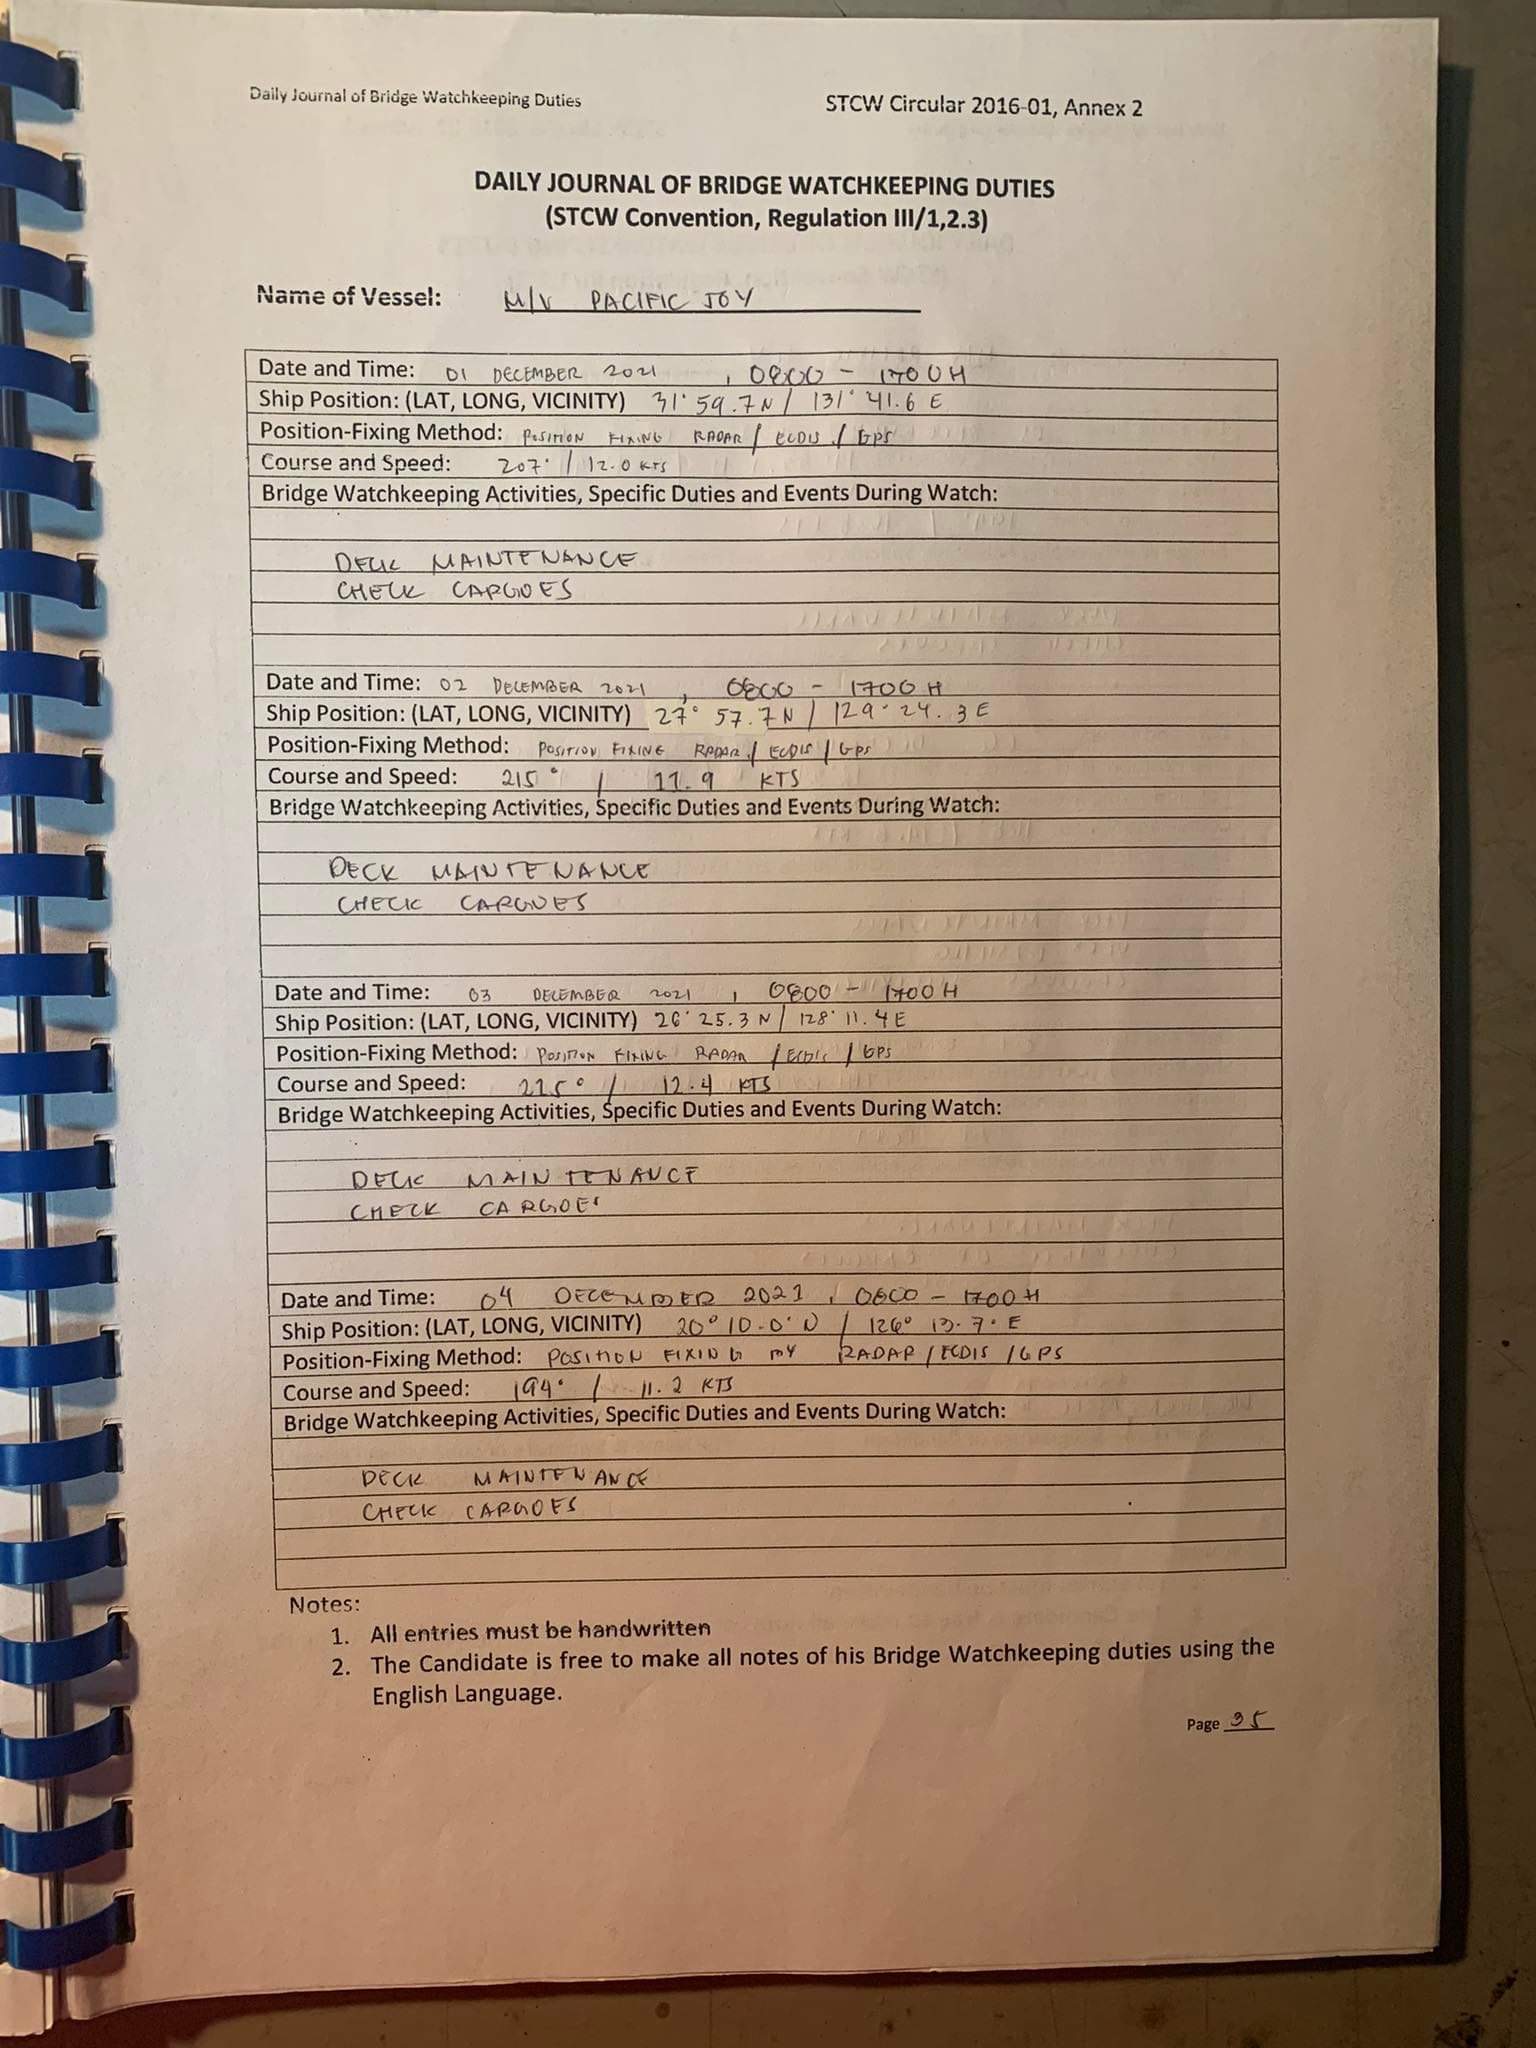 Daily Journal of Bridge Watchkeeping Duties
STCW Circular 2016-01, Annex 2
DAILY JOURNAL OF BRIDGE WATCHKEEPING DUTIES
(STCW Convention, Regulation III/1,2.3)
Name of Vessel: M/V PACIFIC JOY
Date and Time: 01 DECEMBER 2021 , 0800 - 1700H
Ship Position: (LAT, LONG, VICINITY) 31° 59.7 N / 131° 41.6 E
Position-Fixing Method: POSITION FIXING RADAR / ECDIS / GPS
Course and Speed: 207° / 12.0 KTS
Bridge Watchkeeping Activities, Specific Duties and Events During Watch:
DECK MAINTENANCE
CHECK CARGOES
Date and Time: 02 DECEMBER 2021 , 0800 - 1700 H
Ship Position: (LAT, LONG, VICINITY) 27° 57.7 N / 129° 24.3 E
Position-Fixing Method: POSITION FIXING RADAR / ECDIS / GPS
Course and Speed: 215° / 11.9 KTS
Bridge Watchkeeping Activities, Specific Duties and Events During Watch:
DECK MAINTENANCE
CHECK CARGOES
Date and Time: 03 DECEMBER 2021 , 0800 - 1700H
Ship Position: (LAT, LONG, VICINITY) 26° 25.3 N / 128° 11.4 E
Position-Fixing Method: POSITION FIXING RADAR / ECDIS / GPS
Course and Speed: 225° / 12.4 KTS
Bridge Watchkeeping Activities, Specific Duties and Events During Watch:
DECK MAINTENANCE
CHECK CARGOES
Date and Time: 04 DECEMBER 2021 , 0800 - 1700H
Ship Position: (LAT, LONG, VICINITY) 20° 10.0' N / 126° 13.7' E
Position-Fixing Method: POSITION FIXING BY RADAR / ECDIS / GPS
Course and Speed: 194° / 11.2 KTS
Bridge Watchkeeping Activities, Specific Duties and Events During Watch:
DECK MAINTENANCE
CHECK CARGOES
Notes:
1. All entries must be handwritten
2. The Candidate is free to make all notes of his Bridge Watchkeeping duties using the
English Language.
Page 35